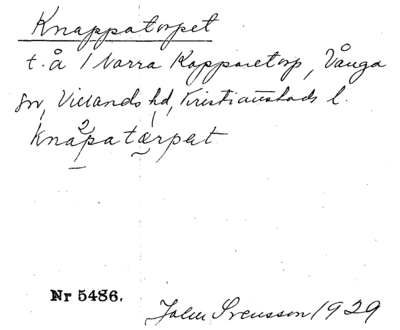 Knappatorpet
t. å 1 Norra Kopparetorp, Vånga
sn, Villands hd, Kristianstads l.
knap²atærpet
Nr 5486.
John Svensson 1929